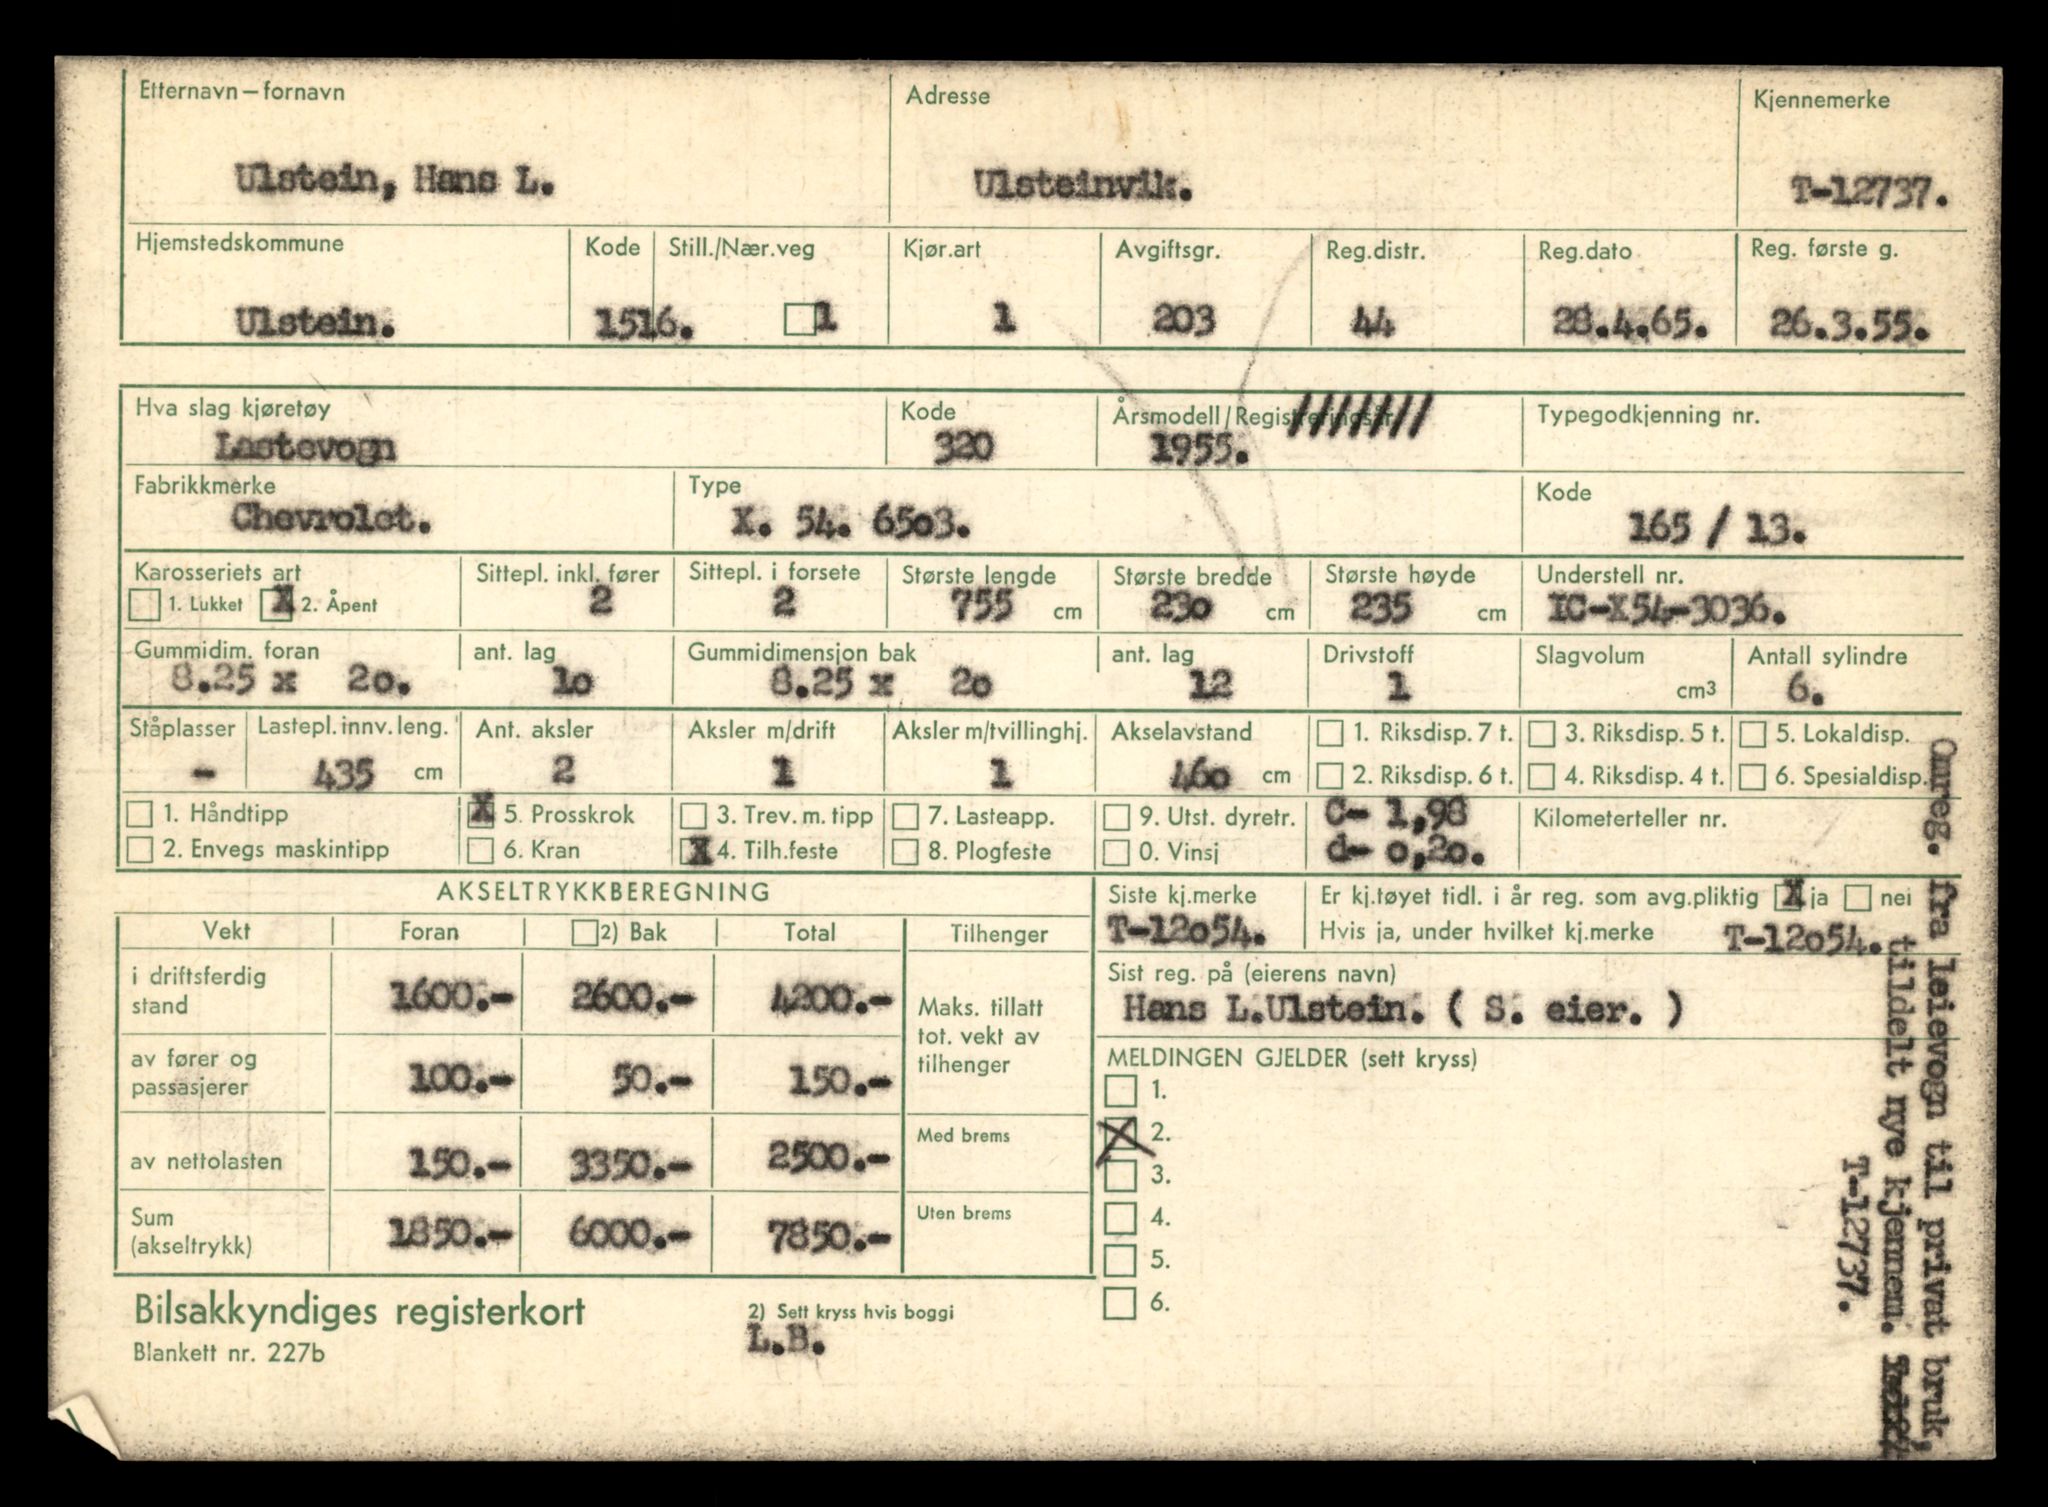 Etternavn – fornavn Adresse Kjennemerke
Ulstein, Hans L. Ulsteinvik. T-12737.
Hjemstedskommune Kode Still./Nær.veg Kjør.art Avgiftsgr. Reg.distr. Reg.dato Reg. første g.
Ulstein. 1516. 1 1 203 44 28.4.65. 26.3.55.
Hva slag kjøretøy Kode Årsmodell/Registreringsår Typegodkjenning nr.
Lastevogn 320 1955. ///////
Fabrikkmerke Type Kode
Chevrolet. X. 54. 6503. 165 / 13.
Karosseriets art Sittepl. inkl. fører Sittepl. i forsete Største lengde Største bredde Største høyde Understell nr.
1. Lukket X 2. Åpent 2 2 755 cm 230 cm 235 cm IC-X54-3036.
Gummidim. foran ant. lag Gummidimensjon bak ant. lag Drivstoff Slagvolum Antall sylindre
8.25 x 20. 10 8.25 x 20 12 1 cm3 6.
Ståplasser Lastepl. innv. leng. Ant. aksler Aksler m/drift Aksler m/tvillinghj. Akselavstand 1. Riksdisp. 7 t. 3. Riksdisp. 5 t. 5. Lokaldisp.
- 435 cm 2 1 1 460 cm 2. Riksdisp. 6 t. 4. Riksdisp. 4 t. 6. Spesialdisp.
1. Håndtipp X 5. Prosskrok 3. Trev. m. tipp 7. Lasteapp. 9. Utst. dyretr. C- 1,98 Kilometerteller nr.
2. Envegs maskintipp 6. Kran X 4. Tilh.feste 8. Plogfeste 0. Vinsj d- 0,20.
AKSELTRYKKBEREGNING Siste kj.merke Er kj.tøyet tidl. i år reg. som avg.pliktig X ja nei
Vekt Foran 2) Bak Total Tilhenger T-12054. Hvis ja, under hvilket kj.merke T-12054.
i driftsferdig stand 1600.- 2600.- 4200.- Maks. tillatt tot. vekt av tilhenger
Sist reg. på (eierens navn)
Hans L.Ulstein. ( S. eier. )
av fører og passasjerer 100.- 50.- 150.-
MELDINGEN GJELDER (sett kryss)
1.
av nettolasten 150.- 3350.- 2500.- Med brems
X 2.
3.
Sum (akseltrykk) 1850.- 6000.- 7850.- Uten brems
4.
5.
6.
Bilsakkyndiges registerkort 2) Sett kryss hvis boggi
L.B.
Blankett nr. 227b
Omreg. fra leievogn til privat bruk,
tildelt nye kjennem.
T-12737.